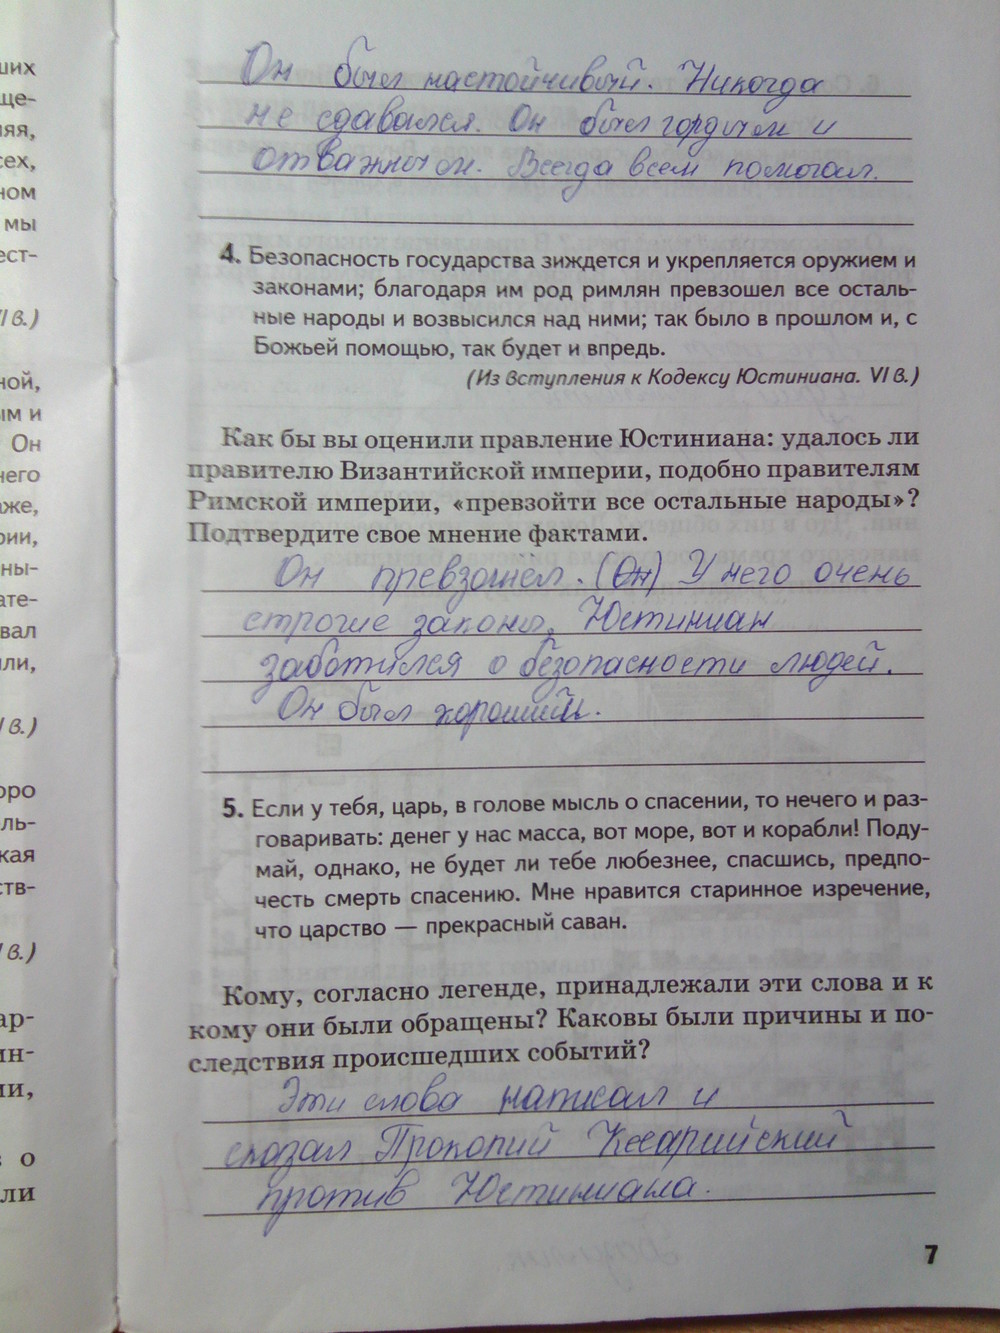 ших
ще-
яя,
сех,
ном
мы
ест-
I в.)
ной,
ым и
Он
него
аже,
рии,
ны-
ате-
вал
или,
I в.)
оро
ль-
кая
ств-
I в.)
ар-
ин-
ии,
в о
ли
Он был настойчивый. Никогда
не сдавался. Он был гордым и
отважным. Всегда всем помогал.
4. Безопасность государства зиждется и укрепляется оружием и
законами; благодаря им род римлян превзошел все осталь-
ные народы и возвысился над ними; так было в прошлом и, с
Божьей помощью, так будет и впредь.
(Из Вступления к Кодексу Юстиниана. VI в.)
Как бы вы оценили правление Юстиниана: удалось ли
правителю Византийской империи, подобно правителям
Римской империи, «превзойти все остальные народы»?
Подтвердите свое мнение фактами.
Он превзошёл. (Он) У него очень
строгие законы, Юстиниан
заботился о безопасности людей.
Он был хороший.
5. Если у тебя, царь, в голове мысль о спасении, то нечего и раз-
говаривать: денег у нас масса, вот море, вот и корабли! Поду-
май, однако, не будет ли тебе любезнее, спасшись, предпо-
честь смерть спасению. Мне нравится старинное изречение,
что царство — прекрасный саван.
Кому, согласно легенде, принадлежали эти слова и к
кому они были обращены? Каковы были причины и по-
следствия происшедших событий?
Эти слова написал и
сказал Прокопий Кесарийский
против Юстиниана.
7